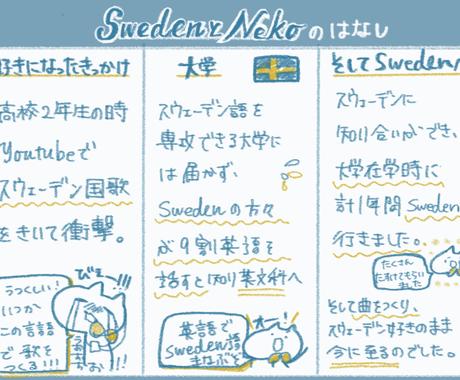 SwedenとNekoのはなし
好きになったきっかけ
高校2年生の時
Youtubeで
スウェーデン国歌
をきいて衝撃。
びェー!!!
うつくしい!
いつか
この言語
で歌を
つくる!!!
大学
スウェーデン語を
専攻できる大学に
は届かず、
Swedenの方々
が9割英語を
話すと知り英文科へ
英語で
Sweden語
まなぶぞ
オー!
そしてSweden
スウェーデンに
知り合いができ、
大学在学時に
計1年間Sweden
行きました。
たくさん
たすけてもらい
ました
そして曲をつくり、
スウェーデン好きのまま
今に至るのでした。